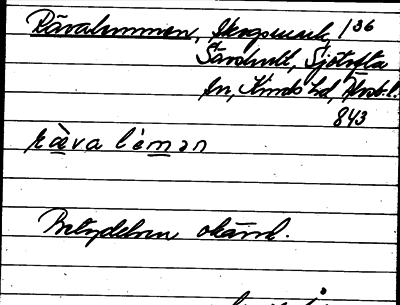 Rävalummen, Skogsmark, 136
Särshult, Sjötofta
sn, Kinds hd, Älvsb. l.
843
rävalömən
Betydelsen okänd.